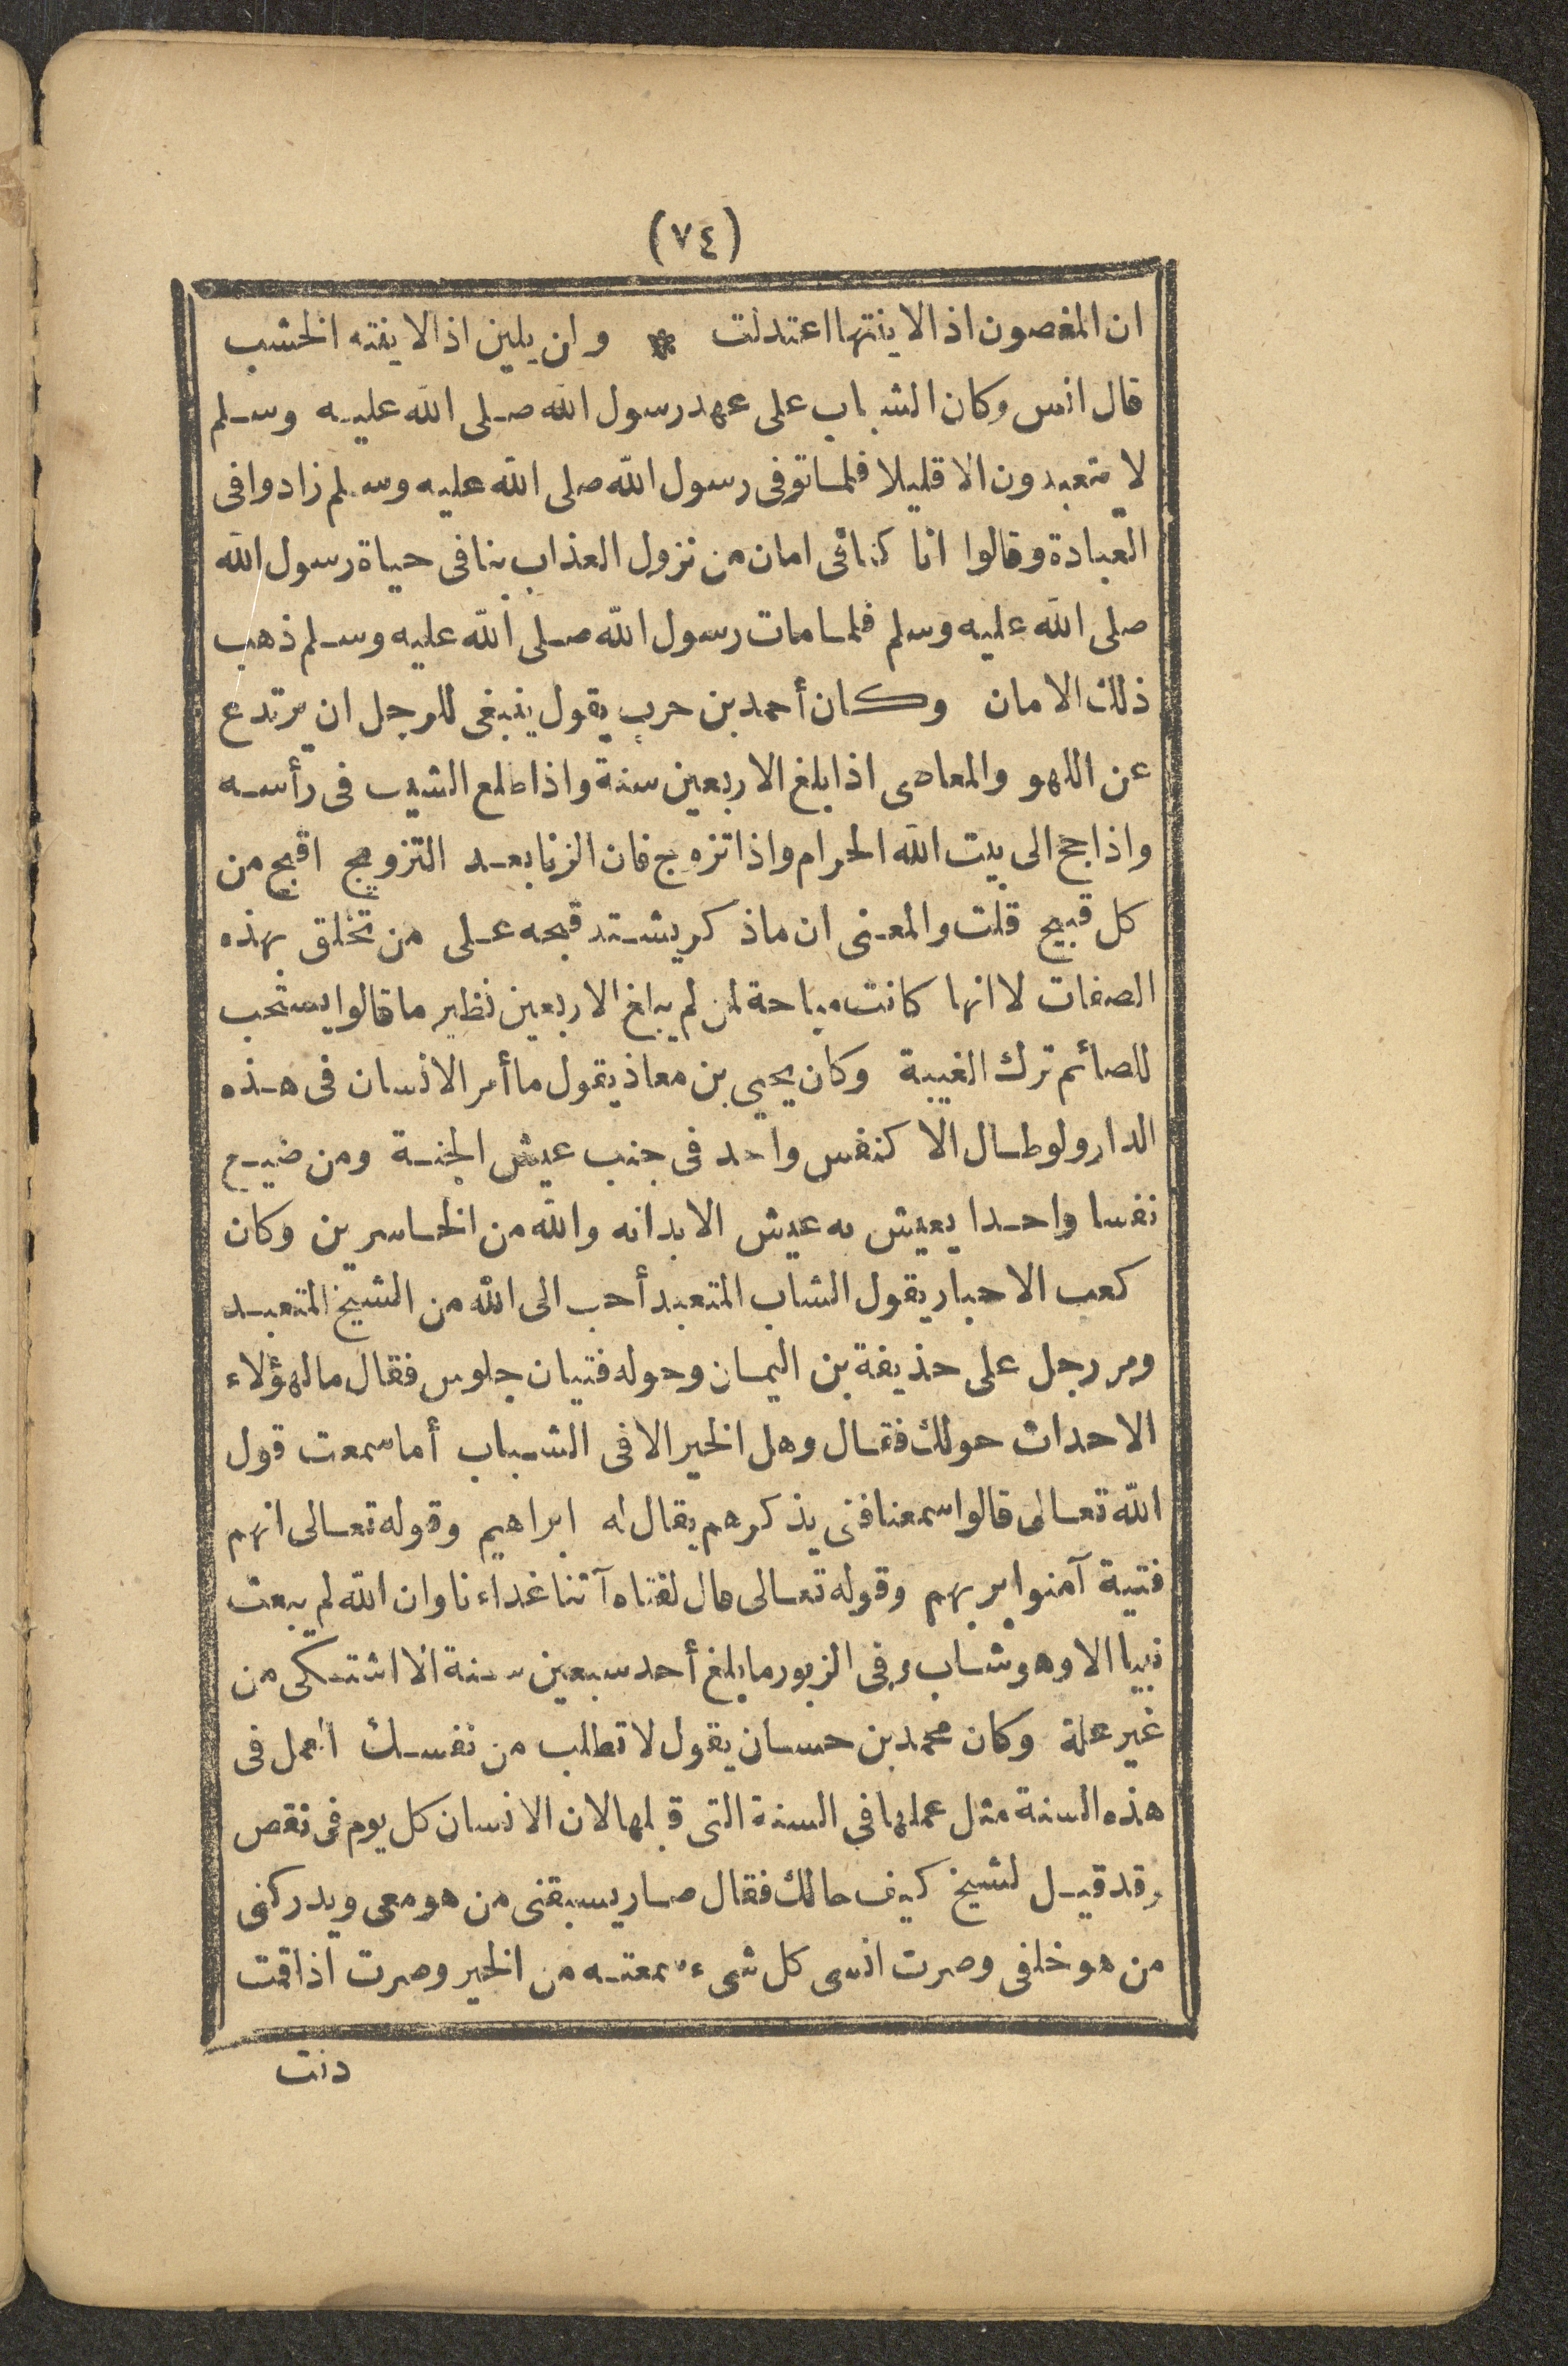 (٧٤)
ان الغصون اذا لاينتها اعتدلت * ولن يلين اذا لاينته الخشب
قال انس وكان الشباب على عهد رسول الله صلى الله عليه وسلم
لا يتعبدون الا قليلا فلما توفى رسول الله صلى الله عليه وسلم زادوا فى
العبادة وقالوا انا كنا فى امان من نزول العذاب بنا فى حياة رسول الله
صلى الله عليه وسلم فلما مات رسول الله صلى الله عليه وسلم ذهب
ذلك الامان وكان أحمد بن حرب يقول ينبغى للرجل ان يرتدع
عن اللهو والمعاصى اذا بلغ الاربعين سنة واذا طلع الشيب فى رأسه
واذا حج الى بيت الله الحرام واذا تزوج فان الزنا بعد التزويج اقبح من
كل قبيح قلت والمعنى ان ماذكر يشتد قبحه على من تخلق بهذه
الصفات لا انها كانت مباحة لمن لم يبلغ الاربعين نظير ما قالوا يستحب
للصائم ترك الغيبة وكان يحيى بن معاذ يقول ما أمر الانسان فى هذه
الدار ولو طال الا كنفس واحد فى جنب عيش الجنة ومن ضيع
نفسا واحدا يعيش به عيش الابد انه والله من الخاسرين وكان
كعب الاحبار يقول الشاب المتعبد أحب الى الله من الشيخ المتعبد
ومر رجل على حذيفة بن اليمان وحوله فتيان جلوس فقال ما لهؤلاء
الاحداث حولك فقال وهل الخير الا فى الشباب أما سمعت قول
الله تعالى قالوا سمعنا فتى يذكرهم يقال له ابراهيم وقوله تعالى انهم
فتية آمنوا بربهم وقوله تعالى قال لفتاه آتنا غداءنا وان الله لم يبعث
نبيا الا وهو شاب وفى الزبور ما بلغ أحد سبعين سنة الا اشتكى من
غير علة وكان محمد بن حسان يقول لا تطلب من نفسك العمل فى
هذه السنة مثل عملها فى السنة التى قبلها لان الانسان كل يوم فى نقص
وقد قيل لشيخ كيف حالك فقال صار يسبقنى من هو معى ويدركنى
من هو خلفى وصرت انسى كل شىء سمعته من الخير وصرت اذا قمت
دنت